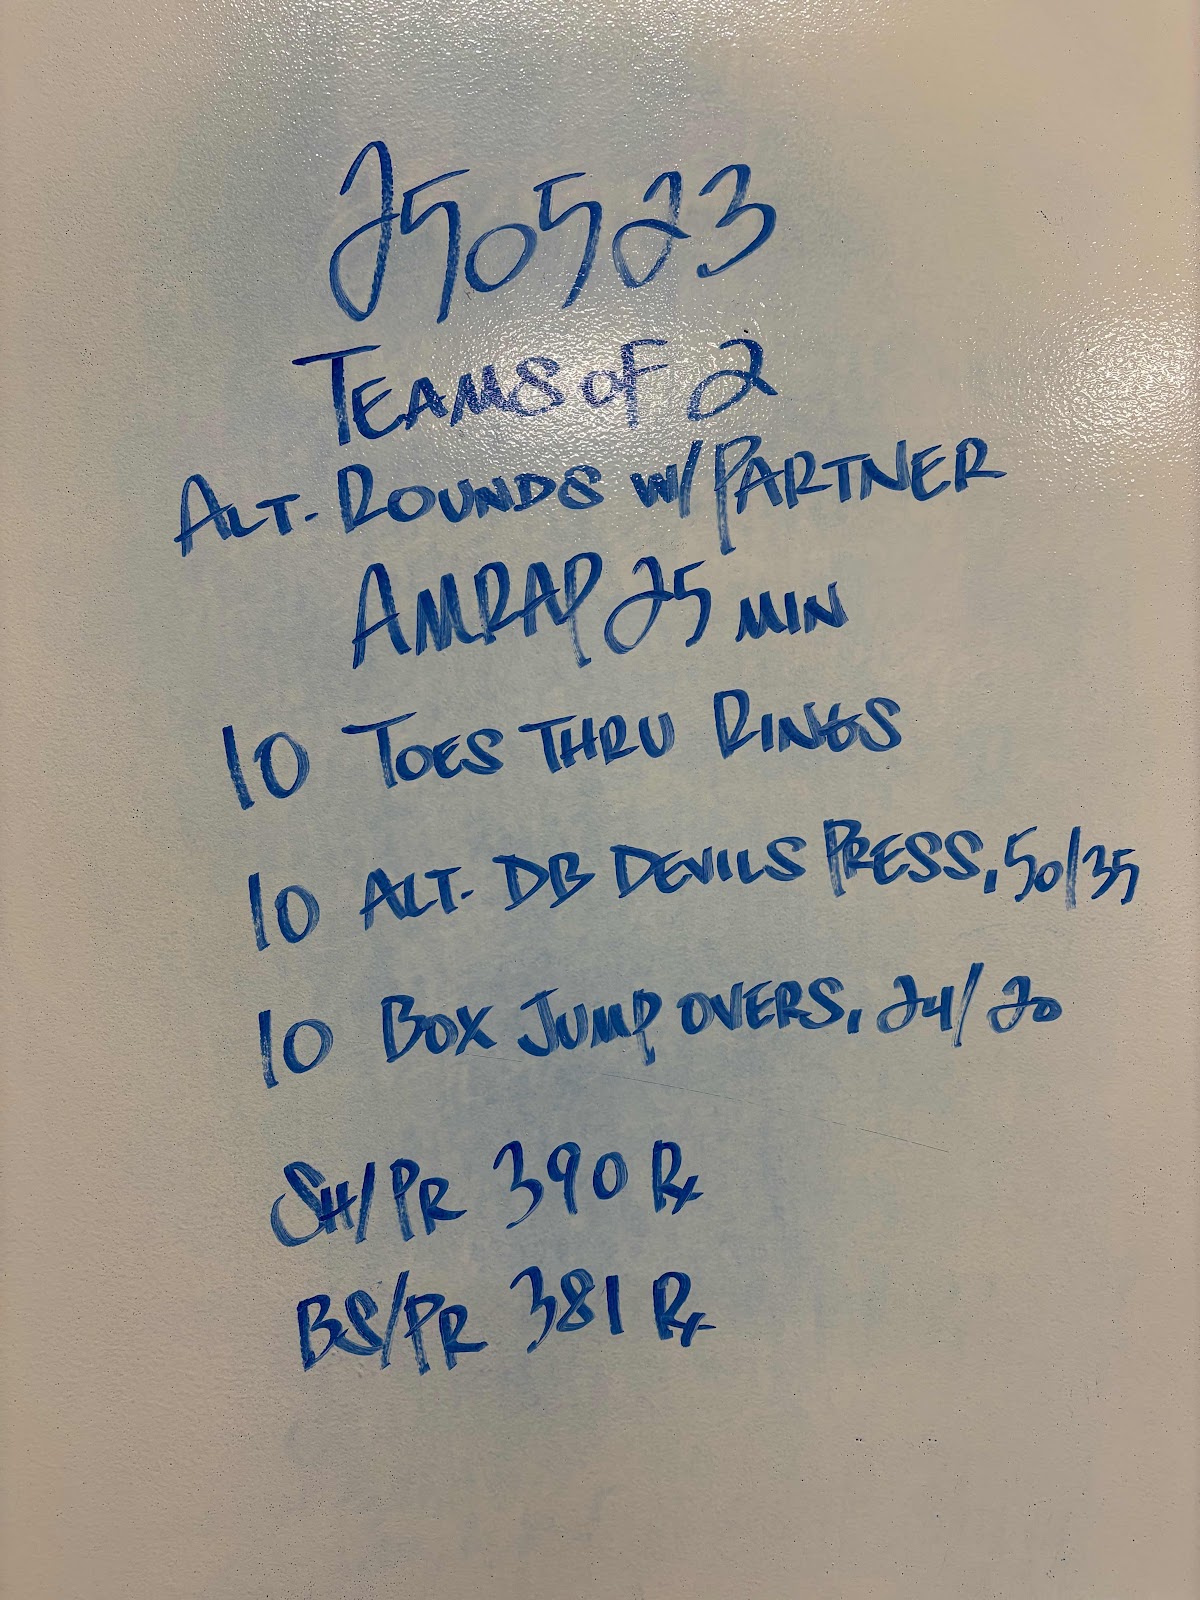 250523
TEAMS OF 2
ALT. ROUNDS W/ PARTNER
AMRAP 25 MIN
10 TOES THRU RINGS
10 ALT. DB DEVILS PRESS, 50/35
10 BOX JUMP OVERS, 24/20
SH/PR 390 Rx
BS/PR 381 Rx